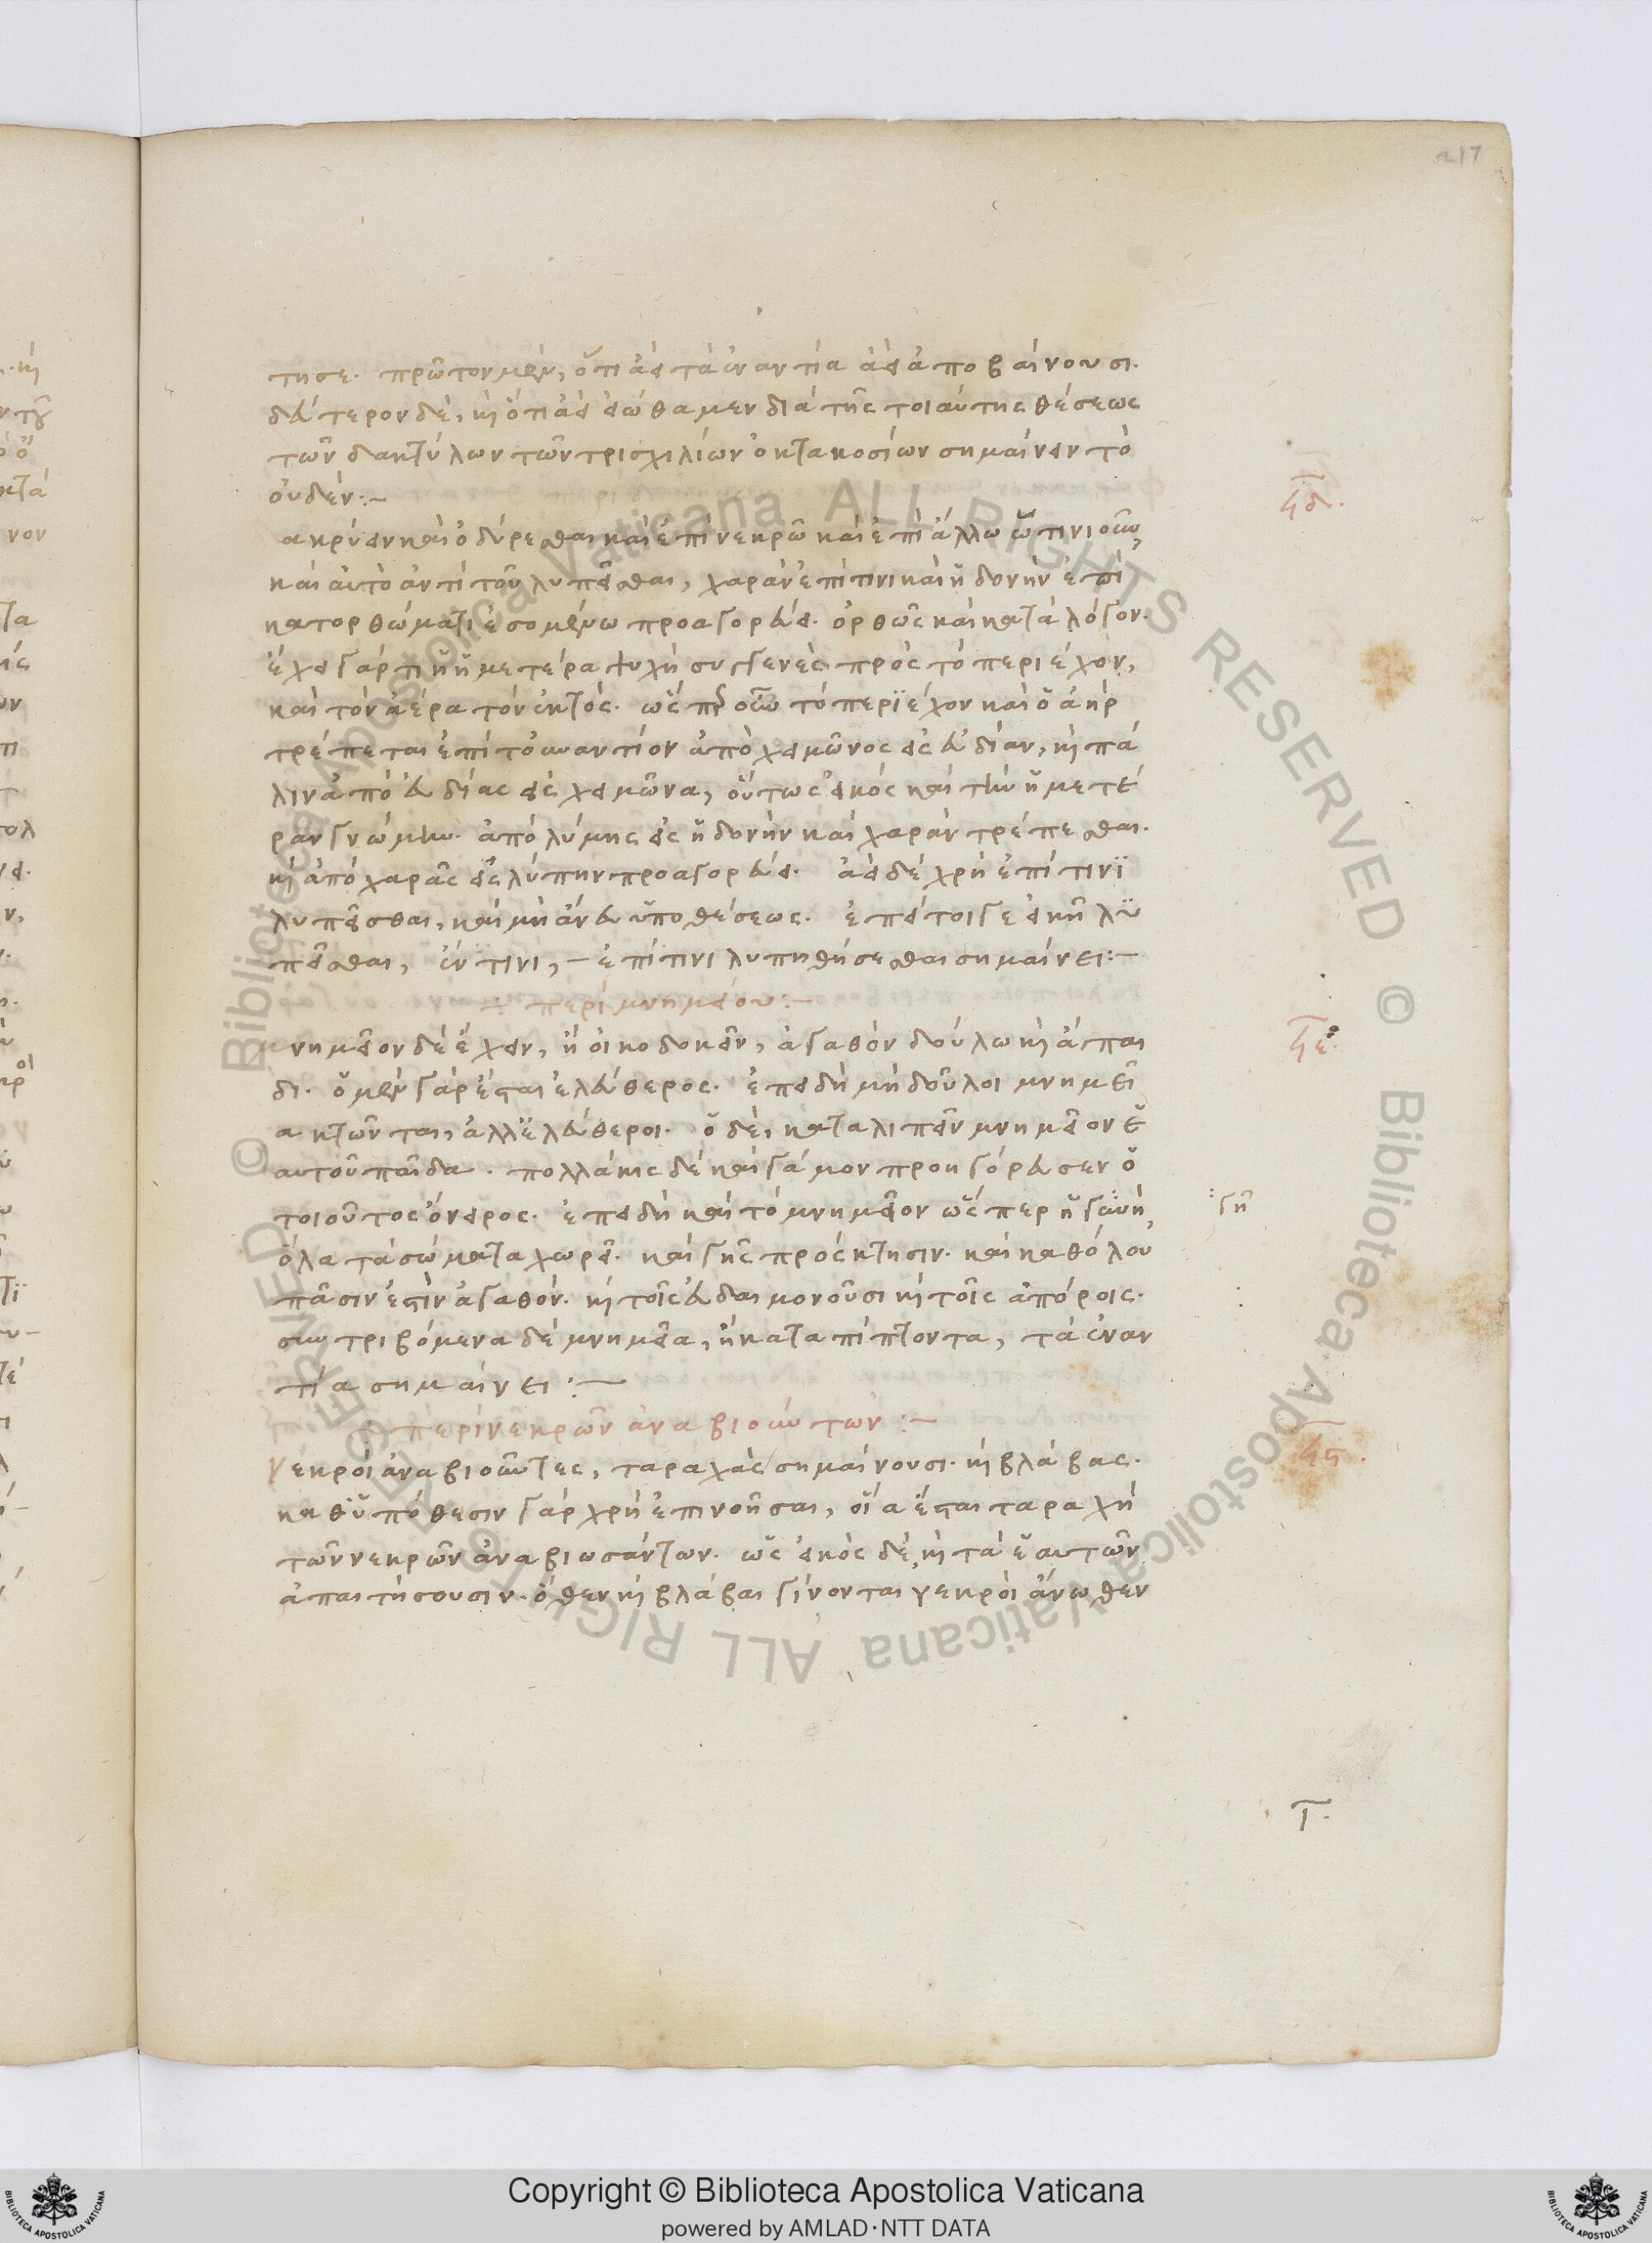 217
τησε. πρῶτον μὲν, ὅτι ἀεὶ τὰ ἐναντία ἀεὶ ἀποβαίνουσι.
δεύτερον δὲ, κὶ ὅτι ἀεὶ εἰώθαμεν διὰ τῆς τοιαύτης θέσεως
τῶν δακτύλων τῶν τρισχιλίων ὀκτακοσίων σημαίνειν τὸ
οὐδέν:—
ϟδ.
ακρύειν καὶ ὀδύρεσθαι καὶ ἐπὶ νεκρῶ καὶ ἐπὶ ἄλλω ὥτινι οὖν,
καὶ αὐτὸ ἀντὶ τοῦ λυπεῖσθαι, χαρὰν ἐπί τινι καὶ ἡδονὴν ἐπὶ
κατορθώματι ἐσομένω προαγορεύει. ὀρθῶς καὶ κατὰ λόγον.
ἔχει γάρ τι ἡ ἡμετέρα ψυχὴ συγγενὲς πρὸς τὸ περιέχον,
καὶ τὸν ἀέρα τὸν ἐκτός. ὥσπερ οὖν τὸ περϊέχον καὶ ὁ ἀὴρ
τρέπεται ἐπὶ τὸ ἐναντίον ἀπὸ χειμῶνος εἰς εὐδίαν, κὶ πά
λιν ἀπὸ εὐδίας εἰς χειμῶνα, οὕτως εἰκὸς καὶ τὴν ἡμετέ
ραν γνώμην. ἀπὸ λύμης εἰς ἡδονὴν καὶ χαρὰν τρέπεσθαι.
κὶ ἀπὸ χαρᾶς εἰς λύπην προαγορεύει. ἀεὶ δὲ χρὴ ἐπί τινϊ
λυπεῖσθαι, καὶ μὴ ἄνευ ὑποθέσεως. ἐπεί τοιγε εἰκῆ λϋ
πεῖσθαι, ἔν τινι, — ἐπί τινι λυπηθήσεσθαι σημαίνει:—
÷ περὶ μνημείου:—
ϟε.
μνημεῖον δὲ ἔχειν, ἢ οἰκοδομεῖν, ἀγαθὸν δούλω κὶ ἄπαι
δι. ὁ μὲν γὰρ ἔσται ἐλεύθερος. ἐπειδὴ μὴ δοῦλοι μνημεῖ
α κτῶνται, ἀλλ' ἐλεύθεροι. ὁ δὲ, καταλιπεῖν μνημεῖον ἑ
αυτοῦ παῖδα. πολλάκις δὲ καὶ γάμον προηγόρευσεν ὁ
τοιοῦτος ὄνειρος. ἐπειδὴ καὶ τὸ μνημεῖον ὥσπερ ἡ γυνὴ,
:γῆ
ὅλα τὰ σώματα χωρεῖ. καὶ γῆς πρόσκτησιν. καὶ καθόλου
πᾶσιν ἐστὶν ἀγαθόν. κὶ τοῖς εὐδαιμονοῦσι κὶ τοῖς ἀπόροις.
συντριβόμενα δὲ μνημεῖα, ἢ καταπίπτοντα, τὰ ἐναν
τία σημαίνει:—
περὶ νεκρῶν ἀναβιούντων:—
ϟϛ.
νεκροὶ ἀναβιοῦντες, ταραχὰς σημαίνουσι. κὶ βλάβας.
καθ' ὑπόθεσιν γὰρ χρὴ ἐπινοῆσαι, οἵα ἔσται ταραχὴ
τῶν νεκρῶν ἀναβιωσάντων. ὡς εἰκὸς δὲ, κὶ τὰ ἑαυτῶν
ἀπαιτήσουσιν. ὅθεν κὶ βλάβαι γίνονται νεκροὶ ἄνωθεν
© Biblioteca Apostolica Vaticana ALL RIGHTS RESERVED © Biblioteca Apostolica Vaticana ALL RIGHTS RESERVED
Copyright © Biblioteca Apostolica Vaticana
powered by AMLAD·NTT DATA
BIBLIOTECA APOSTOLICA VATICANA
BIBLIOTECA APOSTOLICA VATICANA